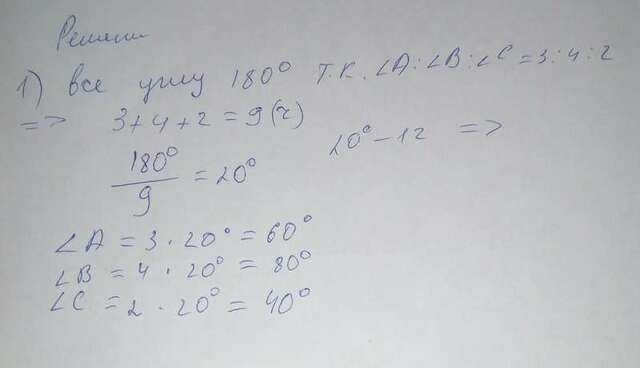 Решени
1) все углы 180° т.к. ∠A:∠B:∠C=3:4:2
=> 3+4+2=9(ч)
180°/9 = 20° 20°-1ч =>
∠A = 3 · 20° = 60°
∠B = 4 · 20° = 80°
∠C = 2 · 20° = 40°